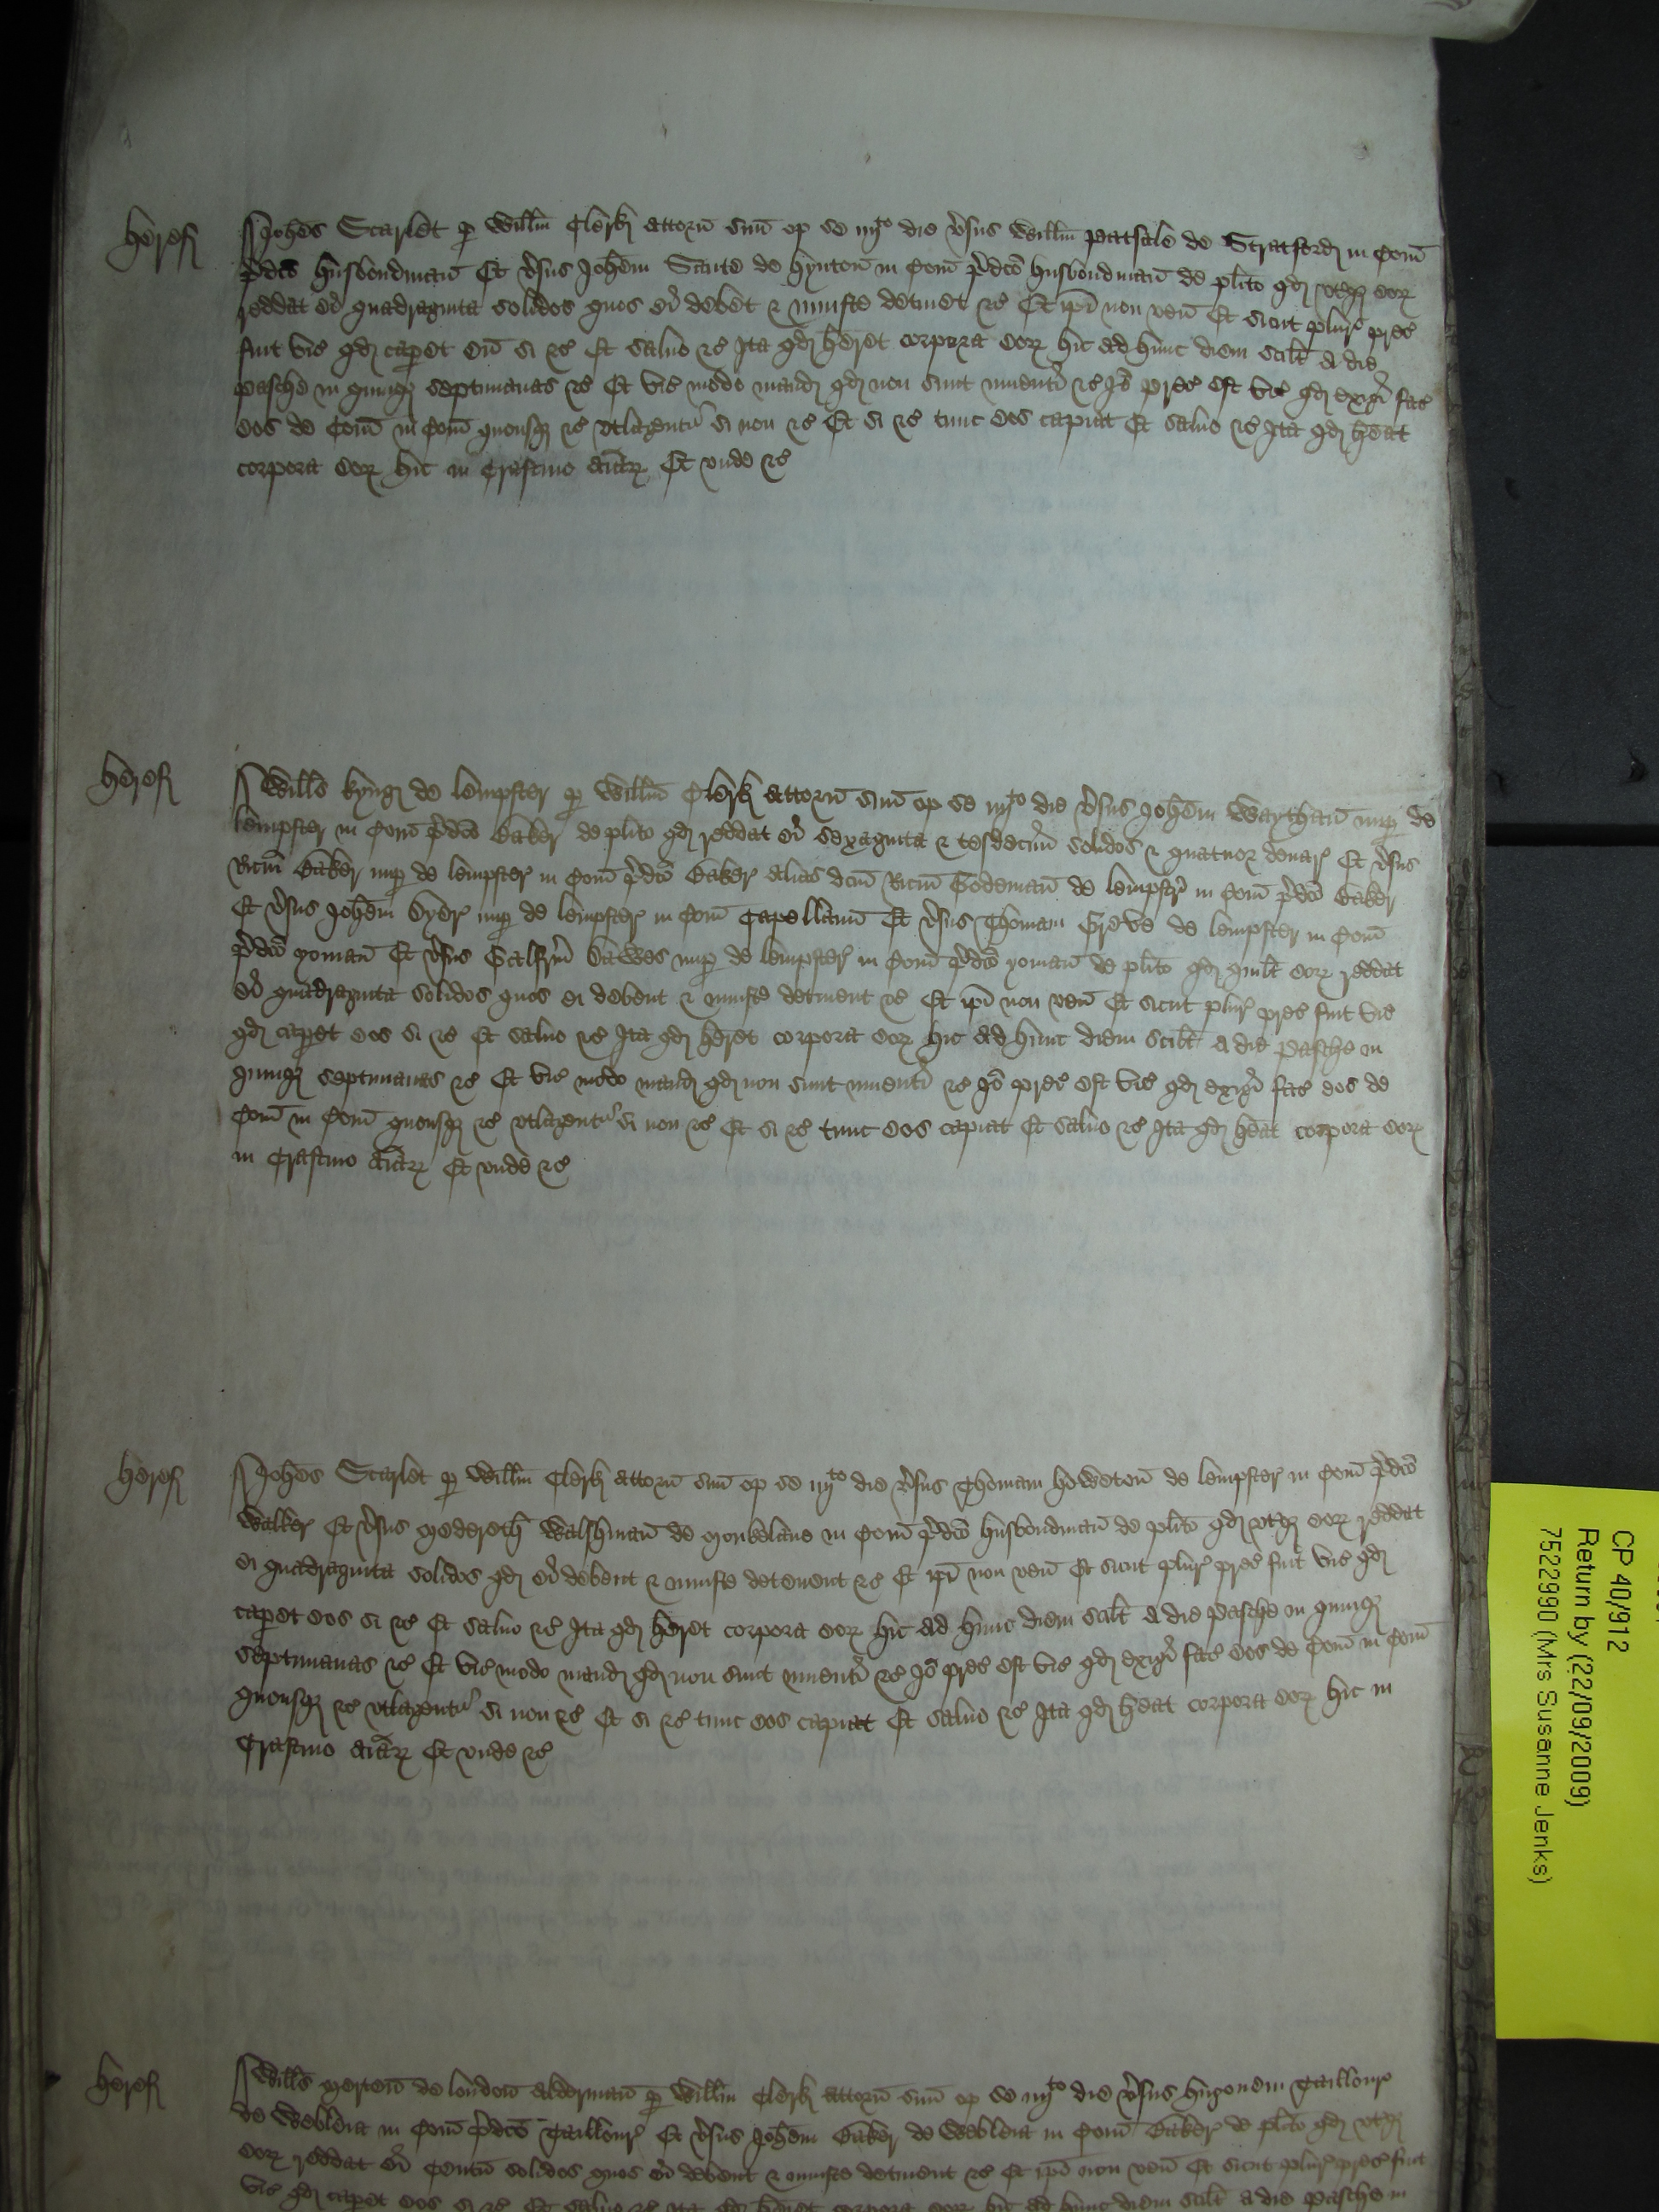 Heref
Joh̄es Scarlet p Will̄m Clerk attorn̄ suū op se iiij to die v̄sus Will̄m Patsale de Stratford in Com̄
p̄dc̄o husbondman̄ Et v̄sus Joh̄em de Hynton̄ in Com̄ p̄dc̄o husbondman̄ de pl̄ito qd utq eoꝝ
reddat ei quadraginta solidos quos ei debet & iniuste detinet &c Et ip̄i non ven̄ Et sicut plur̄ prec
fuit vic qd caperet eū si &c Et saluo &c Ita qd h̄eret corpora eoꝝ hic ad hunc diem scil̄t a die
Pasche in quinq septimanas &c Et vic modo mand qd non sunt inuenti &c Jō prec est vic qd exigi fac
eos de Com̄ in Com̄ quousq &c utlagentur si non &c Et si &c tunc eos capiat Et saluo &c Ita qd h̄eat
corpora eoꝝ hic in Crastino aīaꝝ Et unde &c
Heref
Will̄s Kyng de Lempster p Will̄m Clerk attorn̄ suū op se iiij to die v̄sus Joh̄em nup de
Lempster in Com̄ p̄dc̄o Baker de pl̄ito qd reddat ei sexaginta & tresdecim solidos & quatuor denar Et v̄sus
Ric̄m Baker nup de Lempster in Com̄ p̄dc̄o Baker alias dc̄m Ric̄m Godeman̄ de Lempstr̄ in Com̄ p̄dc̄o Baker
Et v̄sus Joh̄em nup de Lempster in Com̄ Capellanū Et v̄sus Thomam Greve de Lempster in Com̄
p̄dc̄o yoman̄ Et v̄sus Galfr̄m nup de Lempster in Com̄ p̄dc̄o yoman̄ de pl̄ito qd quil̄t eoꝝ reddat
ei quadraginta solidos quos ei debent & iniuste detinent &c Et ip̄i non ven̄ Et sicut plur̄ prec fuit vic
qd caperet eos si &c Et saluo &c Ita qd h̄eret corpora eoꝝ hic ad hunc diem scil̄t a die Pasche in
quinq septimanas &c Et vic modo mand qd non sunt inuenti &c Jō prec est vic qd exigi fac eos de
Com̄ in Com̄ quousq &c utlagentur si non &c Et si &c tunc eos capiat Et saluo &c Ita qd h̄eat corpora eoꝝ
in Crastino aīaꝝ Et unde &c
Heref
Joh̄es Scarlet p Will̄m Clerk attorn̄ suū op se iiij to die v̄sus Thomam Howeton̄ de Lempster in Com̄ p̄dc̄o
Walker Et v̄sus Medereth Walshman̄ de Monkelane in Com̄ p̄dc̄o husbondman̄ de pl̄ito qd utq eoꝝ reddat
ei quadraginta solidos qd ei debent & iniuste detenent &c Et ip̄i non ven̄ Et sicut plur̄ prec fuit vic qd
caperet eos si &c Et saluo &c Ita qd h̄eret corpora eoꝝ hic ad hunc diem scil̄t a die Pasche in quinq
septimanas &c Et vic modo mand qd non sunt inuenti &c Jō prec est vic qd exigi fac eos de Com̄ in Com̄
quousq &c utlagentur si non &c Et si &c tunc eos capiat Et saluo &c Ita qd h̄eat corpora eoꝝ hic in
Crastino aīaꝝ Et unde &c
Heref
Will̄s Merten̄ de London̄ Alderman̄ p Will̄m Clerk attorn̄ suū op se iiij to die v̄sus Hugonem Taillour
de Weblera in Com̄ p̄dc̄o Taillour Et v̄sus Joh̄em Baker de Weblera in Com̄ Baker de pl̄ito qd utq
eoꝝ reddat ei Centū solidos quos ei debent & iniuste detinent &c Et ip̄i non ven̄ Et sicut plur̄ prec fuit
vic qd caperet eos si &c Et saluo &c Ita qd h̄eret corpora eoꝝ hic ad hunc diem scil̄t a die Pasche in
CP 40/912
Return by (22/09/2009)
7522990 (Mrs Susanne Jenks)